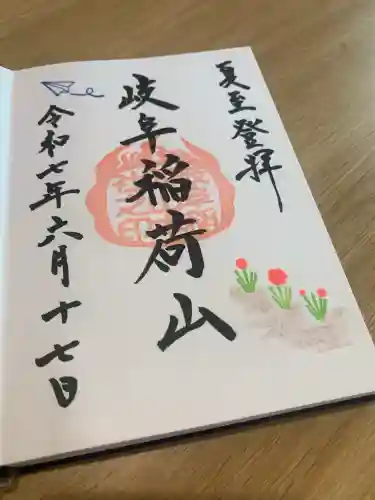 夏至登拝
岐阜稲荷山
令和七年六月十七日